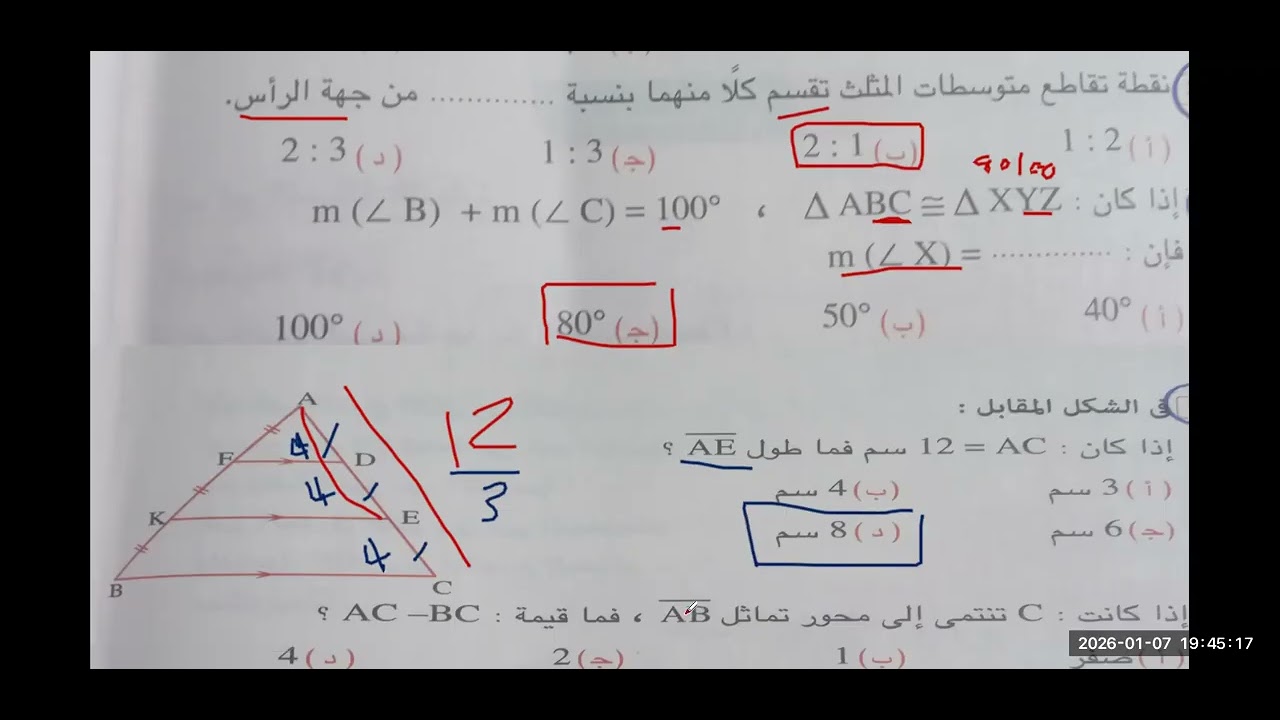 نقطة تقاطع متوسطات المثلث تقسم كلًا منهما بنسبة .............. من جهة الرأس.
(أ) 1 : 2 (ب) 2 : 1 (ج) 1 : 3 (د) 2 : 3
إذا كان : Δ ABC ≅ Δ XYZ ، m (∠ B) + m (∠ C) = 100°
فإن : m (∠ X) = ..............
(أ) 40° (ب) 50° (ج) 80° (د) 100°
فى الشكل المقابل :
إذا كان : AC = 12 سم فما طول AE ؟
(أ) 3 سم (ب) 4 سم
(ج) 6 سم (د) 8 سم
A
F D
K E
B C
4
4
4
12
3
إذا كانت : C تنتمى إلى محور تماثل AB ، فما قيمة : AC – BC ؟
(أ) صفر (ب) 1 (ج) 2 (د) 4
2026-01-07 19:45:17